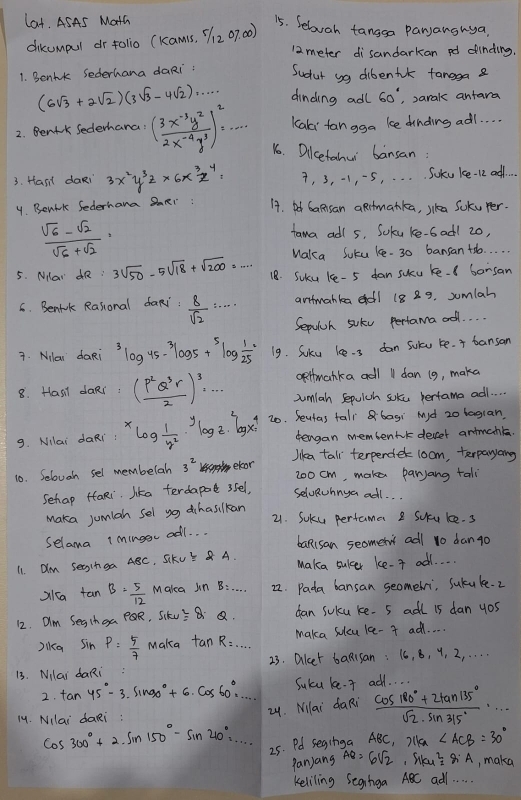 Lat. ASAS Math
dikumpul dr folio (KAMIS, 5/12 07.00)
1. Bentuk Sederhana dari :
(6√3 + 2√2)(3√3 - 4√2) = ....
2. Bentuk Sederhana: (3x⁻³y² / 2x⁻⁴y³)² = ....
3. Hasil dari 3x²y³z × 6x³z⁴ =
4. Bentuk Sederhana dari :
√6 - √2 / √6 + √2 =
5. Nilai dr : 3√50 - 5√18 + √200 = ....
6. Bentuk Rasional dari : 8/√2 = ....
7. Nilai dari ³log 45 - ³log 5 + ⁵log 1/25 =
8. Hasil dari : (P²Q³r / 2)³ = ...
9. Nilai dari : ˣLog 1/y² . ʸlog z . ᶻlog x⁴
10. Sebuah sel membelah 3² ekor
setiap Hari. Jika terdapat 3 sel,
Maka jumlah sel yg dihasilkan
Selama 1 minggu adl...
11. Dlm segitiga ABC, siku² di A.
Jika tan B = 5/12 Maka sin B = ....
12. Dlm Segitiga PQR, Siku² di Q.
Jika Sin P = 5/7 Maka tan R = ....
13. Nilai dari :
2. tan 45° - 3. Sin 90° + 6. Cos 60° = ....
14. Nilai dari :
Cos 300° + 2. Sin 150° - Sin 240° = ....
15. Sebuah tangga panjangnya,
12 meter di sandarkan pd dinding.
Sudut yg dibentuk tangga &
dinding adl 60°, Jarak antara
Kaki tangga ke dinding adl ....
16. Diketahui barisan :
7, 3, -1, -5, .... Suku ke-12 adl....
17. Pd barisan aritmatika, Jika suku per-
tama adl 5, Suku ke-6 adl 20,
Maka Suku ke-30 barisan tsb.....
18. Suku ke-5 dan suku ke-8 barisan
aritmatika adl 18 & 9, Jumlah
Sepuluh suku pertama adl....
19. Suku ke-3 dan Suku ke-7 barisan
aritmatika adl 11 dan 19, maka
Jumlah sepuluh suku pertama adl....
20. Seutas tali dibagi Mjd 20 bagian,
dengan membentuk deret aritmatika.
Jika tali terpendek 10cm, terpanjang
200 cm, maka panjang tali
seluruhnya adl...
21. Suku pertama & suku ke-3
barisan geometri adl 10 dan 40
Maka suku ke-7 adl....
22. Pada barisan geometri, suku ke-2
dan suku ke-5 adl 15 dan 405
Maka Suku ke-7 adl....
23. Diket barisan : 16, 8, 4, 2, ....
Suku ke-7 adl....
24. Nilai dari Cos 180° + 2 tan 135° / √2 . Sin 315° = ....
25. Pd segitiga ABC, Jika ∠ACB = 30°
panjang AB = 6√2, Siku² di A, maka
keliling segitiga ABC adl .....